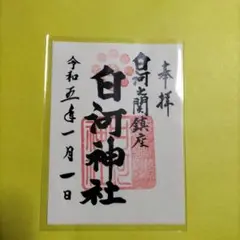 奉拝
白河之関鎮座
白河神社
令和五年一月一日